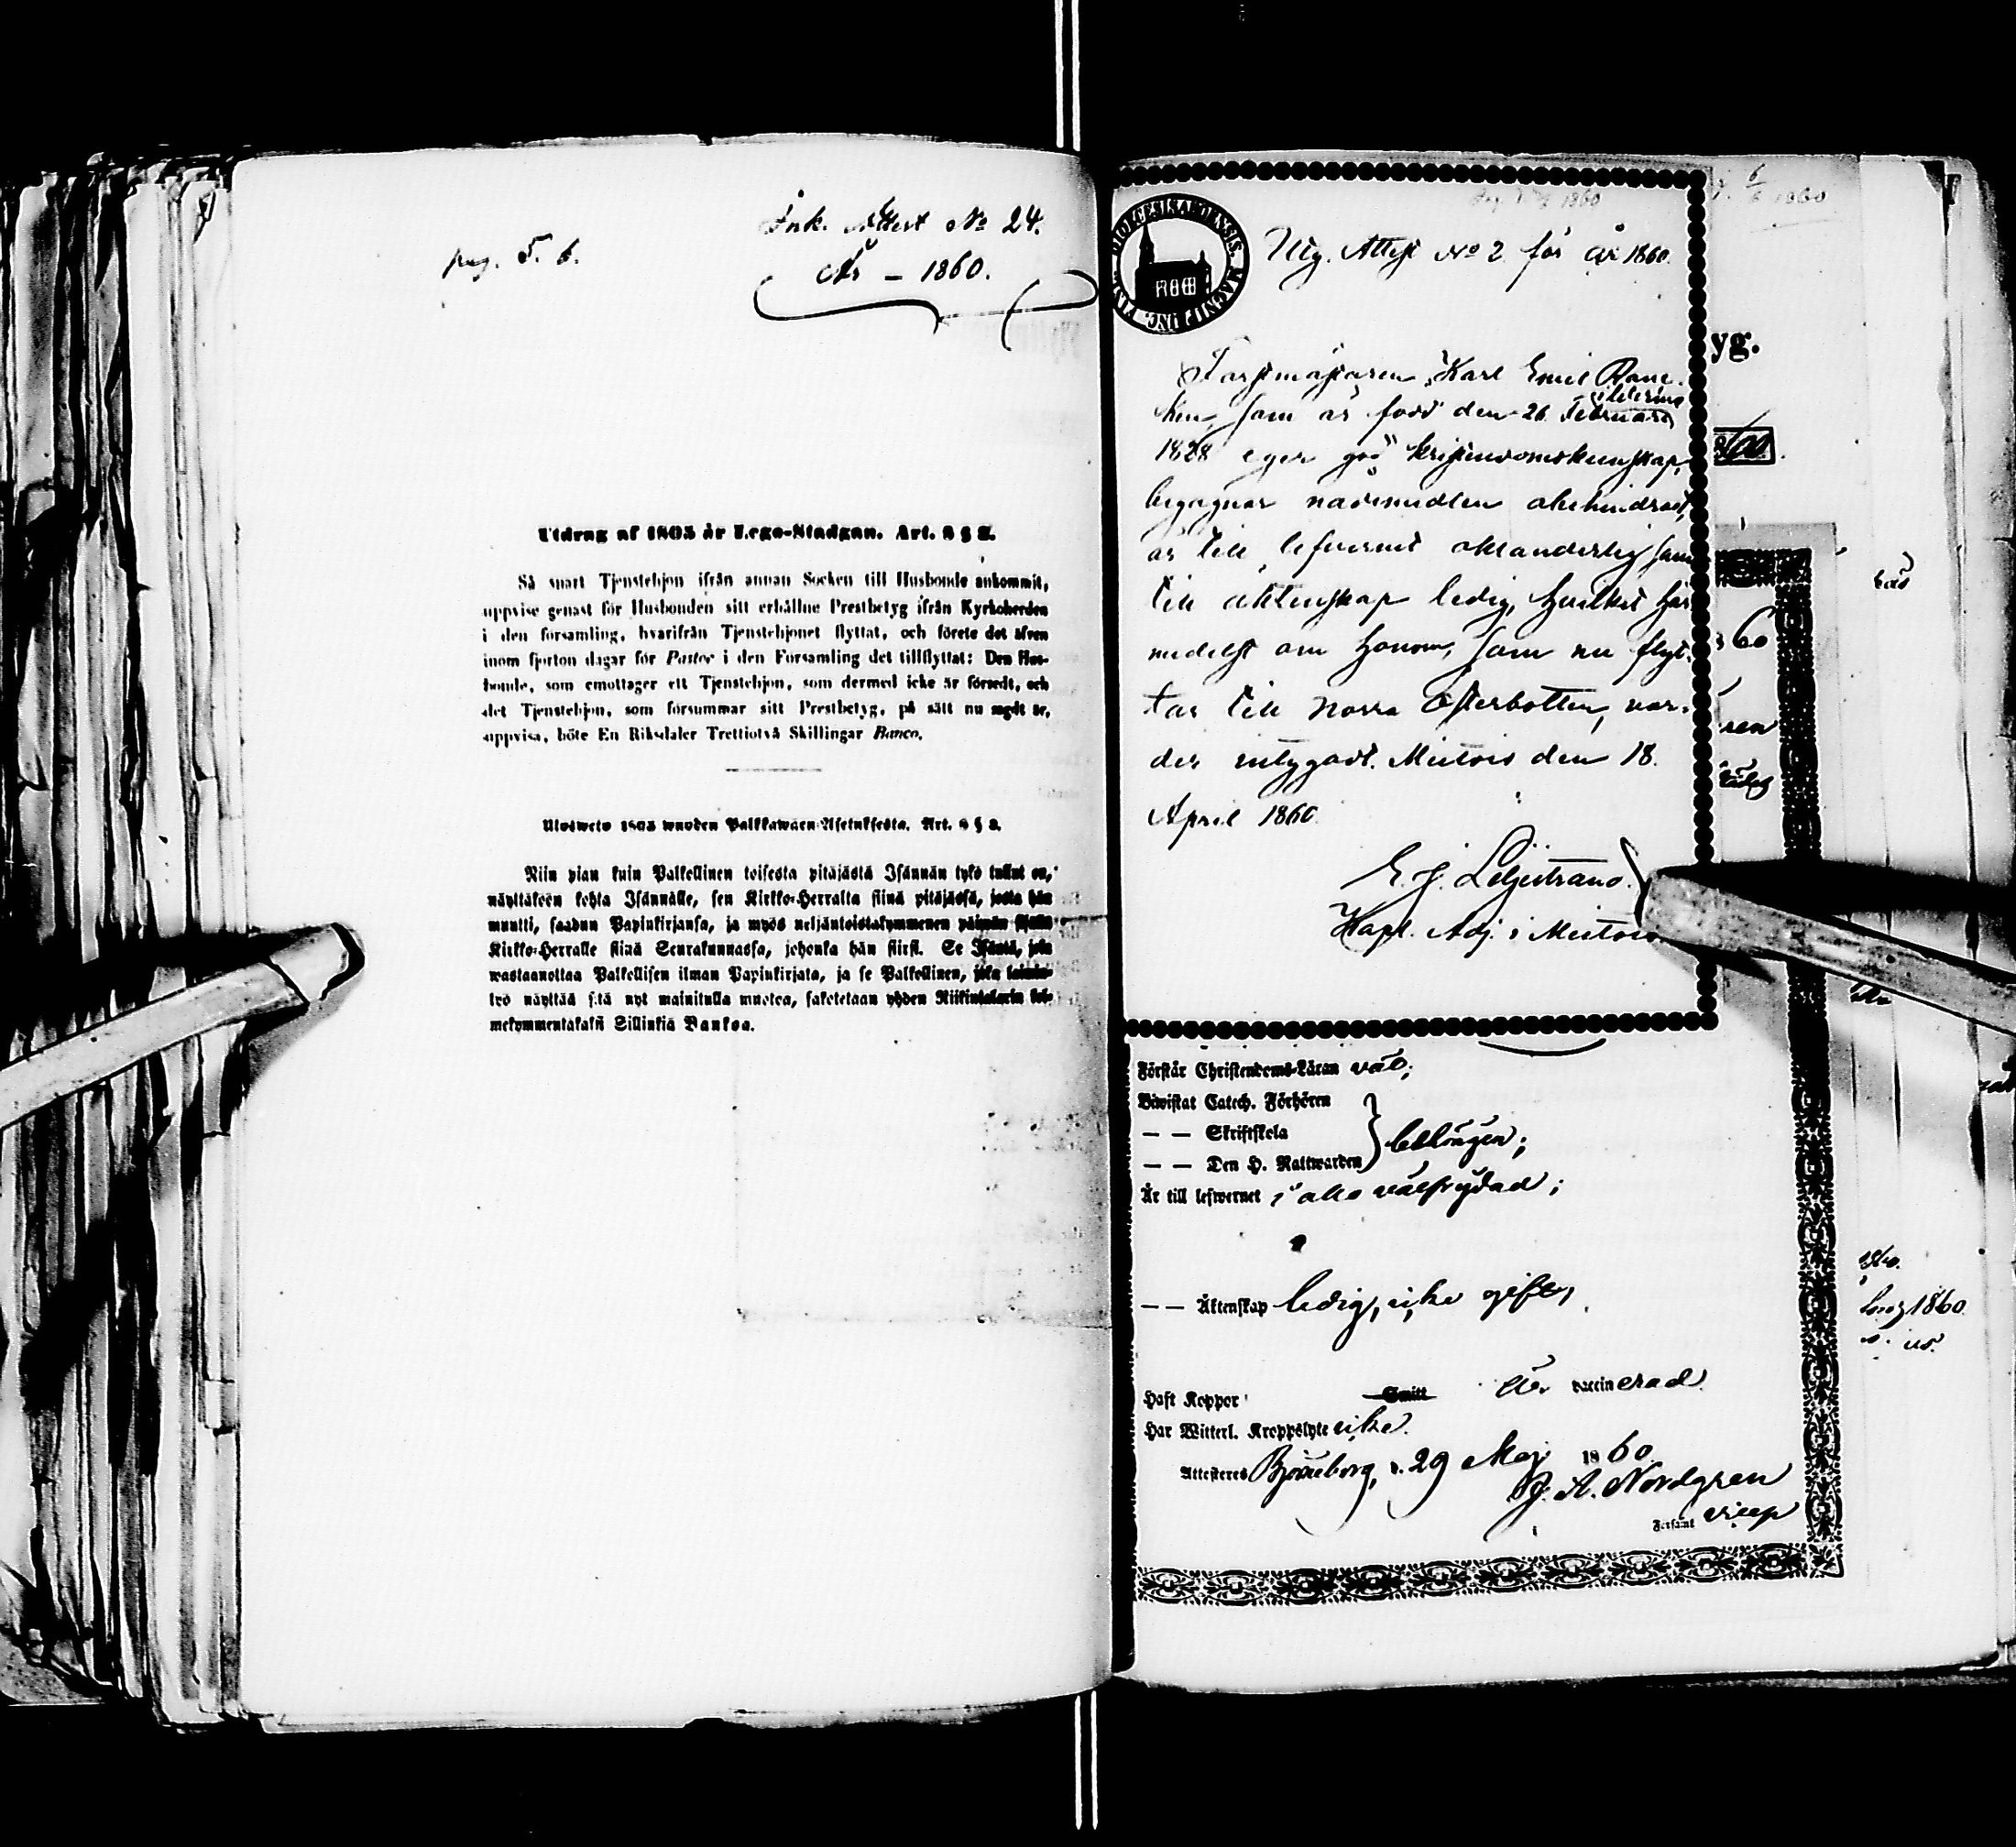 pag. 5. 6.
Ink. Attest No 24.
År - 1860.
Utdrag af 1805 år Lego-Stadgan. Art. 8 § 2.
Så snart Tjenstehjon ifrån annan Socken till Husbonde ankommit,
uppvise genast för Husbonden sitt erhållne Prestbetyg ifrån Kyrkoherden
i den forsamling, hvarifrån Tjenstehjonet flyttat, och förete det äfven
inom fjorton dagar för Pastor i den Forsamling det tillflyttat: Den Hus-
bonde, som emottager ett Tjenstehjon, som dermed icke är försedt, och
det Tjenstehjon, som försummar sitt Prestbetyg, på sätt nu sagdt är,
uppvisa, böte En Riksdaler Trettiotvå Skillingar Banco.
Ulosweto 1805 wuoden Palkkawäen-Asetuksesta. Art. 8 § 2.
Niin pian kuin Palkollinen toisesta pitäjästä Isännän tykö tullut on,
näyttäköön kohta Isännälle, sen Kirkko-Herralta siinä pitäjässä, josta hän
muutti, saadun Papinkirjansa, ja myös neljäntoistakymmenen päiwän sisällä
Kirkko-Herralle siinä Seurakunnassa, johonka hän siirsi. Se Isäntä, joka
wastaanottaa Palkollisen ilman Papinkirjata, ja se Palkollinen, joka laimin-
lyö näyttää sitä nyt mainitulla muotoa, sakotetaan yhden Riikintalarin kol-
mekymmentäkaksi Sillinkiä Bankoa.
Utg. Attest No 2 för år 1860.
Forstmästaren, Karl Emil
som är född den 26 Februari
1828 eger god kristendomskunskap,
begagnar nådemedlen obehindradt,
är till lefvernet oklanderlig samt
till äktenskap ledig, hvilket här-
medelst om honom, som nu flyt-
tar till Norra Österbotten, var-
der intygadt. Mietois den 18.
April 1860.
E. J. Liljestrand.
Kapl. Adj. i Mietois
yg.
60
Förstår Christendoms-Läran väl;
Biwistat Catech. Förhören
— — Skriftskola
— — Den H. Nattwarden
Är till lefwernet i allo välfrejdad;
— — Äktenskap ledig, icke gift,
Haft Koppor Smitt är vaccinerad
Har Witterl. Kroppslyte icke.
Attesteras Björneborg, d. 29 Maj 1860.
J. A. Nordgren
1860.